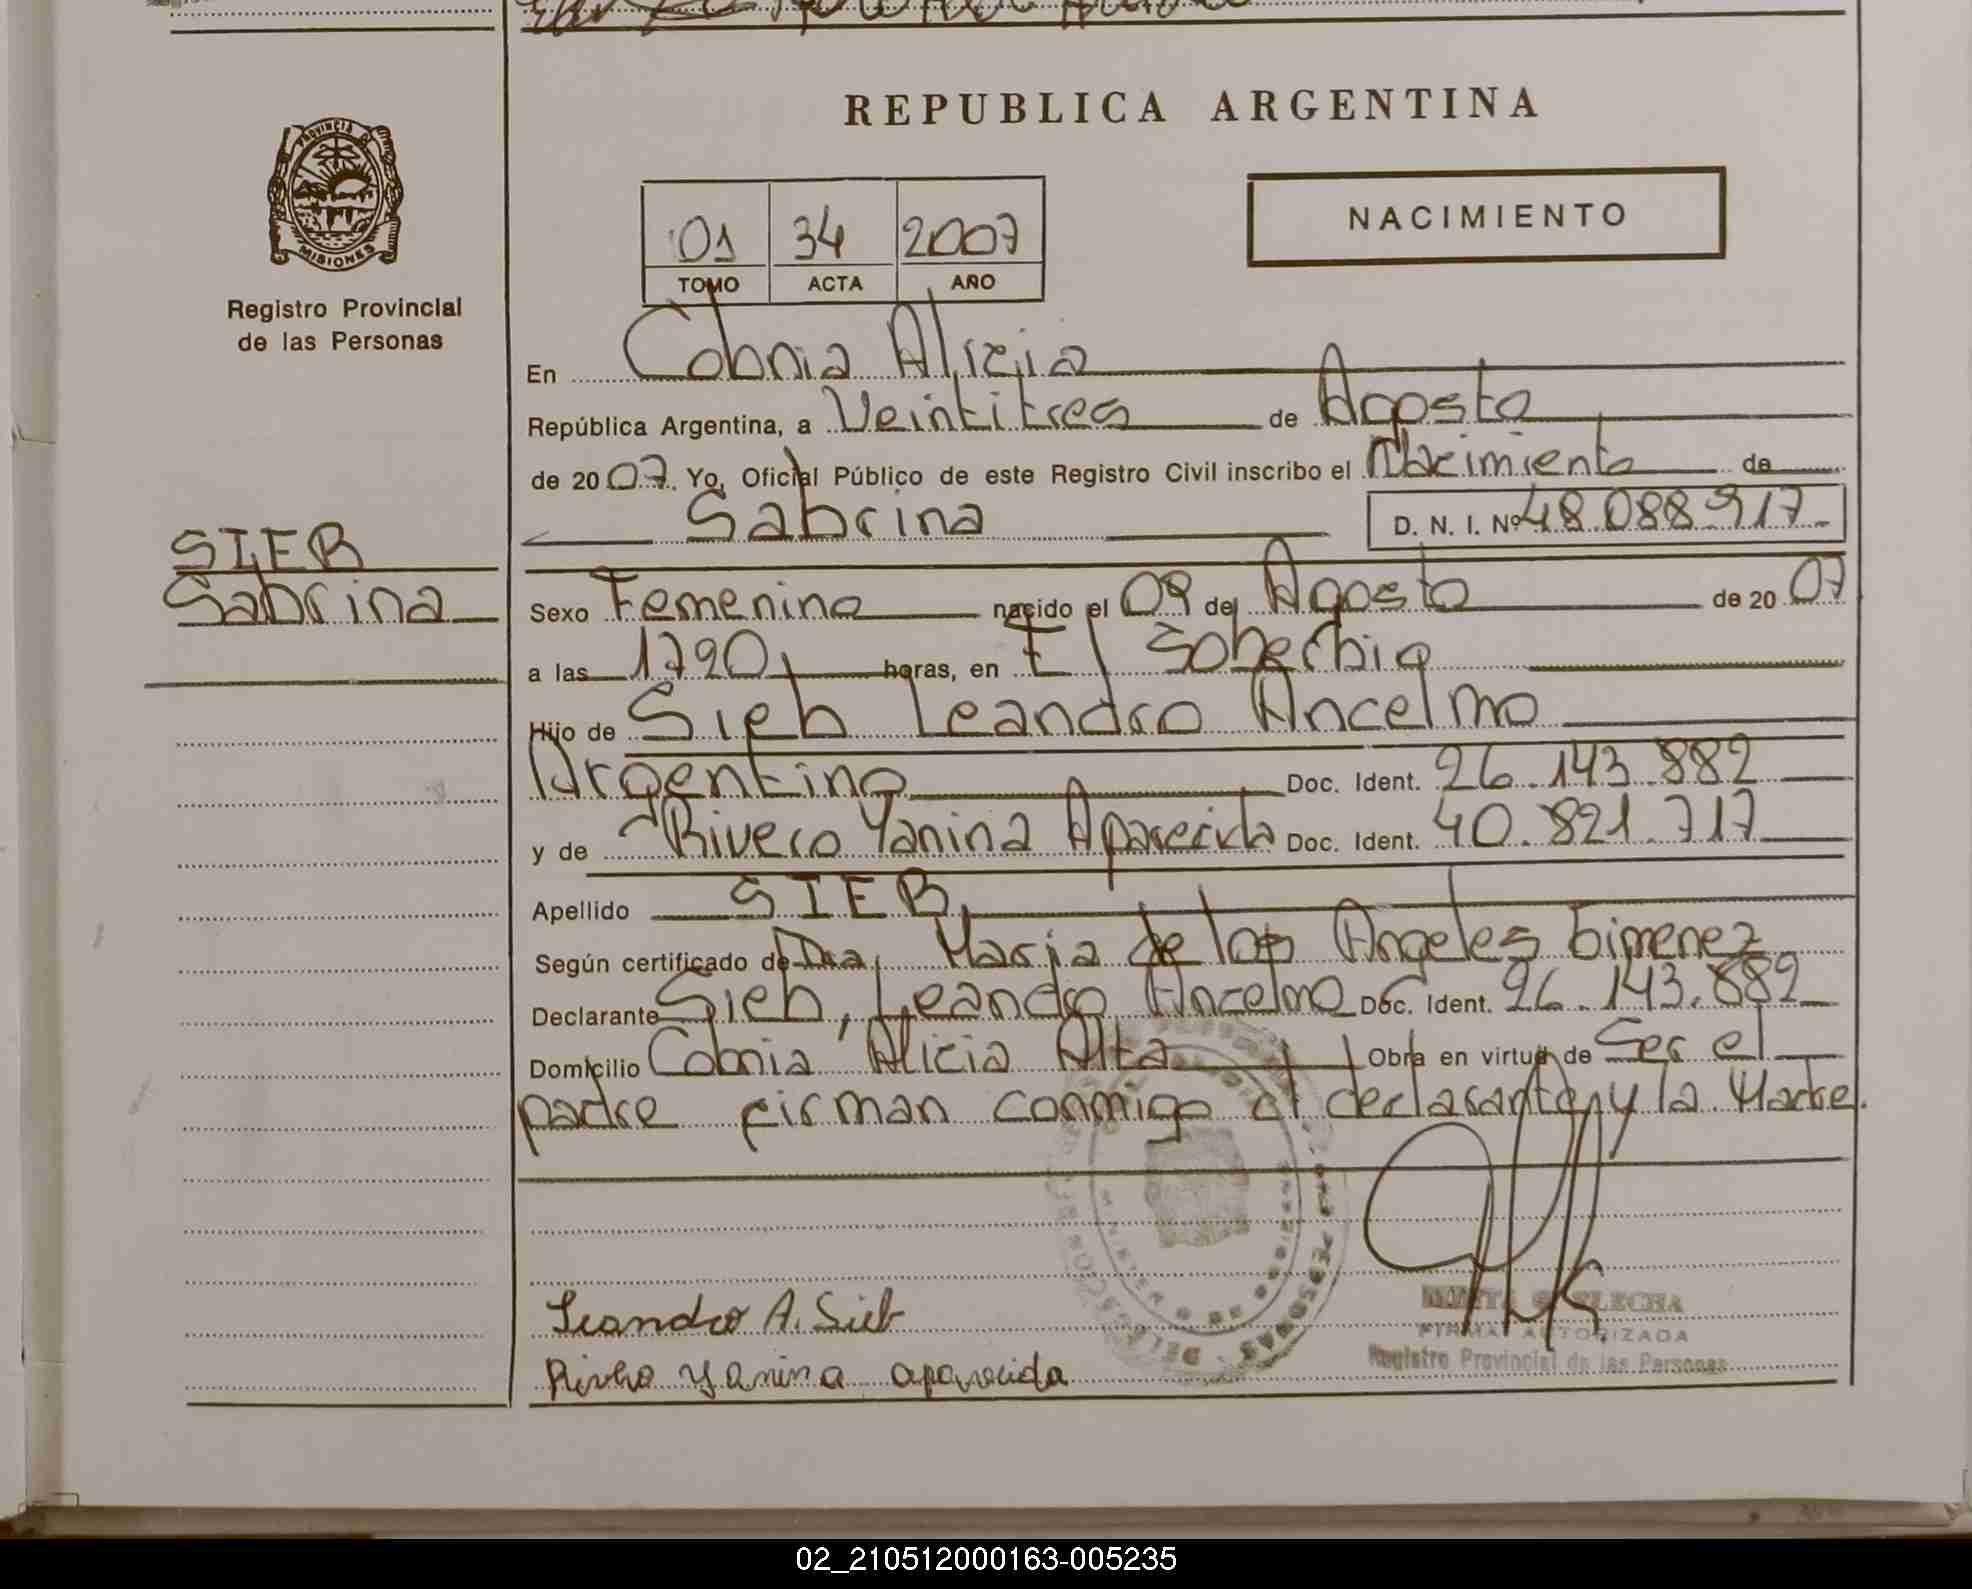 REPUBLICA ARGENTINA
PROVINCIA DE
MISIONES
Registro Provincial
de las Personas
NACIMIENTO
01 34 2007
TOMO ACTA AÑO
En Colonia Alicia
República Argentina, a Veintitres de Agosto
de 2007. Yo, Oficial Público de este Registro Civil inscribo el Nacimiento de
Sabrina D. N. I. Nº 48.088.917
SIEB
Sabrina
Sexo Femenino nacido el 09 de Agosto de 2007
a las 1720 horas, en El Soberbio
Hijo de Sieb Leandro Ancelmo
Argentino Doc. Ident. 26.143.882
y de Rivero Yanina Aparecida Doc. Ident. 40.821.717
Apellido SIEB
Según certificado de Dra, Maria de los Angeles Gimenez
Declarante Sieb, Leandro Ancelmo Doc. Ident. 26.143.882
Domicilio Colonia Alicia Alta Obra en virtud de Ser el
padre firman conmigo el declarante y la Madre.
Leandro A. Sieb
FIRMA AUTORIZADA
Registro Provincial de las Personas
Rivero Yanina aparecida
02_210512000163-005235